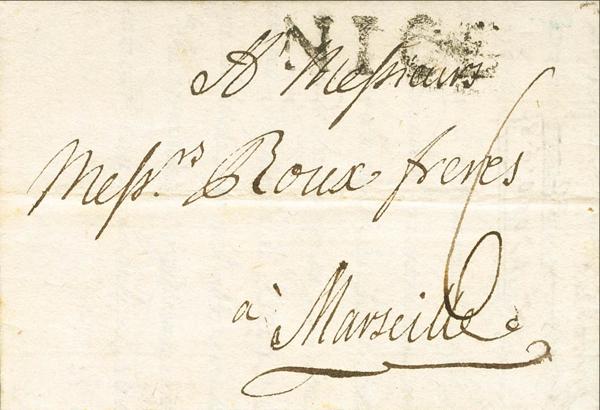 NICE
A Messieurs
Mess.rs Roux freres
à Marseille
6